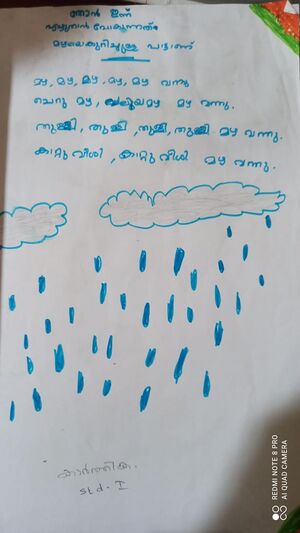 ഞാൻ ഇന്ന്
എഴുതുവാൻ പോകുന്നത്
മഴയെകുറിച്ചുള്ള പാട്ടാണ്
മഴ, മഴ, മഴ, മഴ, മഴ വന്നു
ചെറു മഴ, വലിയമഴ മഴ വന്നു.
തുള്ളി, തുള്ളി, തുള്ളി, തുള്ളി മഴ വന്നു.
കാറ്റു വീശി, കാറ്റു വീശി മഴ വന്നു.
കാർത്തിക.
std. I
REDMI NOTE 8 PRO
AI QUAD CAMERA